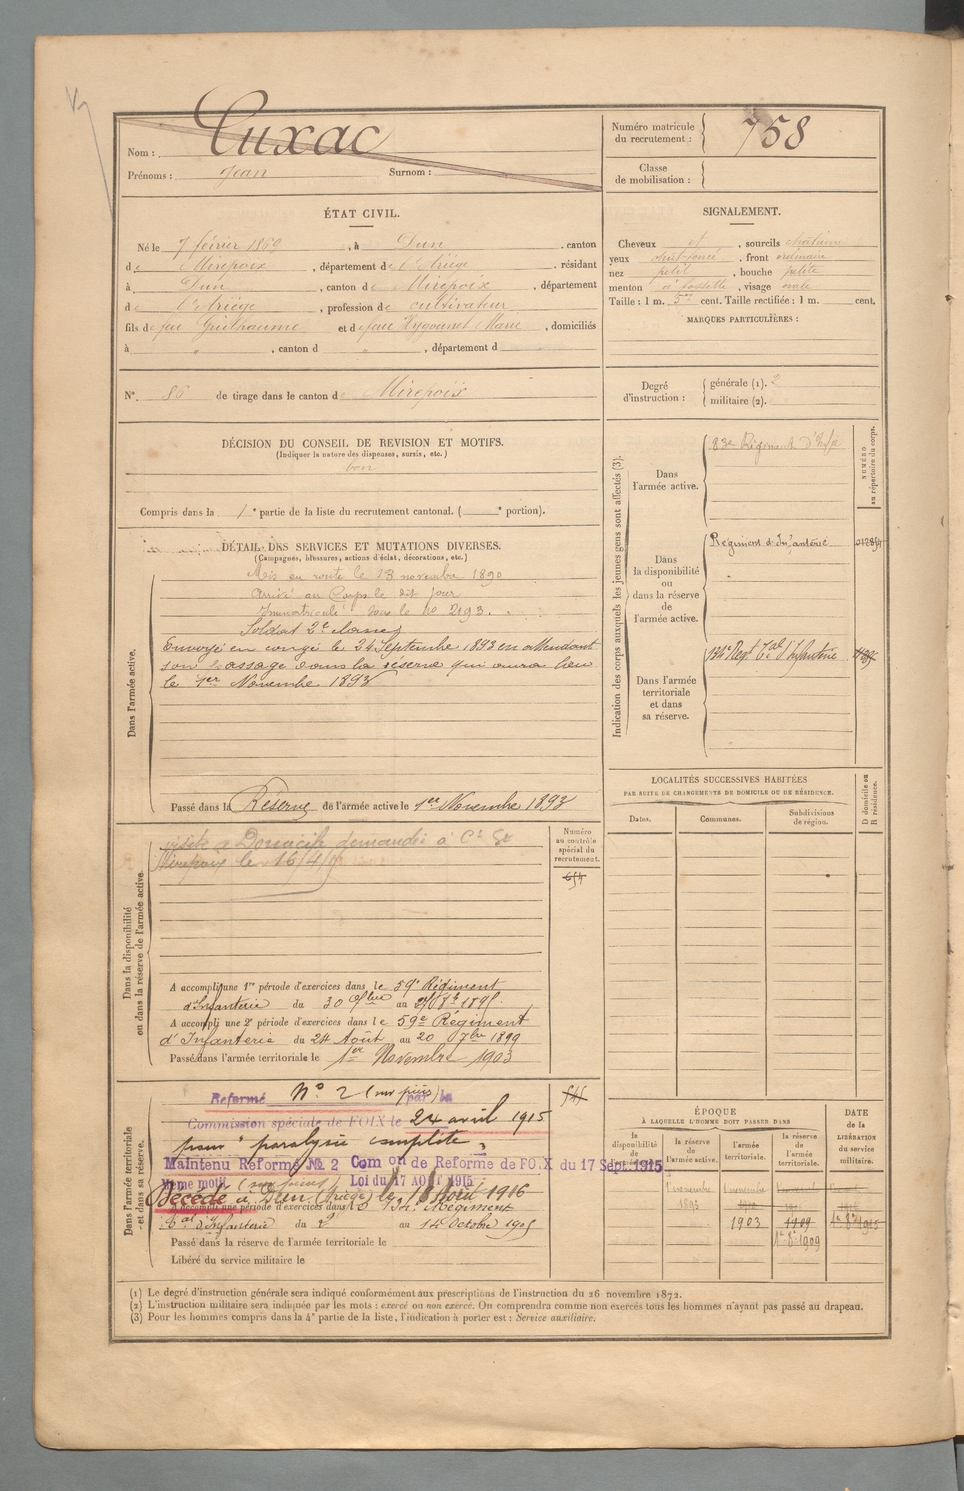 Nom : Cuxac
Prénoms : Jean Surnom :
Numéro matricule du recrutement : 758
Classe de mobilisation :
ÉTAT CIVIL.
Né le 7 février 1869, à Dun, canton
de Mirepoix, département de l'Ariège, résidant
à Dun, canton de Mirepoix, département
de l'Ariège, profession de cultivateur
fils de feu Guilhaume et de feu Marie, domiciliés
à " , canton d " , département d
N° 86 de tirage dans le canton de Mirepoix
SIGNALEMENT.
Cheveux et, sourcils châtains
yeux, front ordinaire
nez petit, bouche petite
menton à fossette, visage ovale
Taille : 1 m. cent. Taille rectifiée : 1 m. cent.
MARQUES PARTICULIÈRES :
Degré d'instruction : générale (1). 2
militaire (2).
DÉCISION DU CONSEIL DE REVISION ET MOTIFS.
(Indiquer la nature des dispenses, sursis, etc.)
bon
Compris dans la 1e partie de la liste du recrutement cantonal. ( e portion).
DÉTAIL DES SERVICES ET MUTATIONS DIVERSES.
(Campagnes, blessures, actions d'éclat, décorations, etc.)
Dans l'armée active.
Mis en route le 13 novembre 1890
Arrivé au Corps le dit jour
Immatriculé sous le no 2193.
Soldat 2e classe
Envoyé en congé le 24 Septembre 1893 en attendant
son passage dans la réserve qui aura lieu
le 1er Novembre 1893
Passé dans la Réserve de l'armée active le 1er Novembre 1893
Indication des corps auxquels les jeunes gens sont affectés (3).
NUMÉRO au répertoire du corps.
Dans l'armée active.
83e Régiment d'Inf.
Dans la disponibilité ou dans la réserve de l'armée active.
Régiment d'Infanterie
Dans l'armée territoriale et dans sa réserve.
134e Regt Tal d'Infanterie
LOCALITÉS SUCCESSIVES HABITÉES
PAR SUITE DE CHANGEMENTS DE DOMICILE OU DE RÉSIDENCE.
D domicile ou R résidence.
Dates.
Communes.
Subdivisions de région.
Dans la disponibilité ou dans la réserve de l'armée active.
Numéro au contrôle spécial du recrutement.
654
visite à Domicile demandée à
Mirepoix le 16/4/
A accompli une 1re période d'exercices dans le 59e Régiment
d'Infanterie du 30 au
A accompli une 2e période d'exercices dans le 59e Régiment
d'Infanterie du 24 Août au 20 7bre 1899
Passé dans l'armée territoriale le 1er Novembre 1903
Dans l'armée territoriale et dans sa réserve.
545
Reformé No 2 (sur pièces) par la
Commission spéciale de FOIX le 24 avril 1915
pour "paralysie complète"
Maintenu Réformé No. 2 Comon de Reforme de FOIX du 17 Sept. 1915
Même motif (sur pièces) Loi du 17 AOUT 1915
Décédé à Dun (Ariège) le 18 Août 1916
A accompli une période d'exercices dans le 134e Régiment
Tal d'Infanterie du 2 au 14 Octobre 1905
Passé dans la réserve de l'armée territoriale le
Libéré du service militaire le
ÉPOQUE
À LAQUELLE L'HOMME DOIT PASSER DANS
DATE de la LIBÉRATION du service militaire.
la disponibilité
la réserve de l'armée active.
l'armée territoriale.
la réserve de l'armée territoriale.
1 novembre 1893
1 novembre
1903
1909
1er 8bre 1909
1er 8bre 1915
(1) Le degré d'instruction générale sera indiqué conformément aux prescriptions de l'instruction du 26 novembre 1872.
(2) L'instruction militaire sera indiquée par les mots : exercé ou non exercé. On comprendra comme non exercés tous les hommes n'ayant pas passé au drapeau.
(3) Pour les hommes compris dans la 4e partie de la liste, l'indication à porter est : Service auxiliaire.